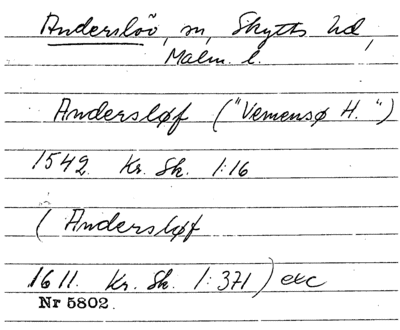 Anderslöv, sn, Skytts hd,
Malm. l.
Andersløf ("Vemensø H.")
1542 Kr. Sk. 1:16
( Andersløf
1611. Kr. Sk. 1:371) etc
Nr 5802.